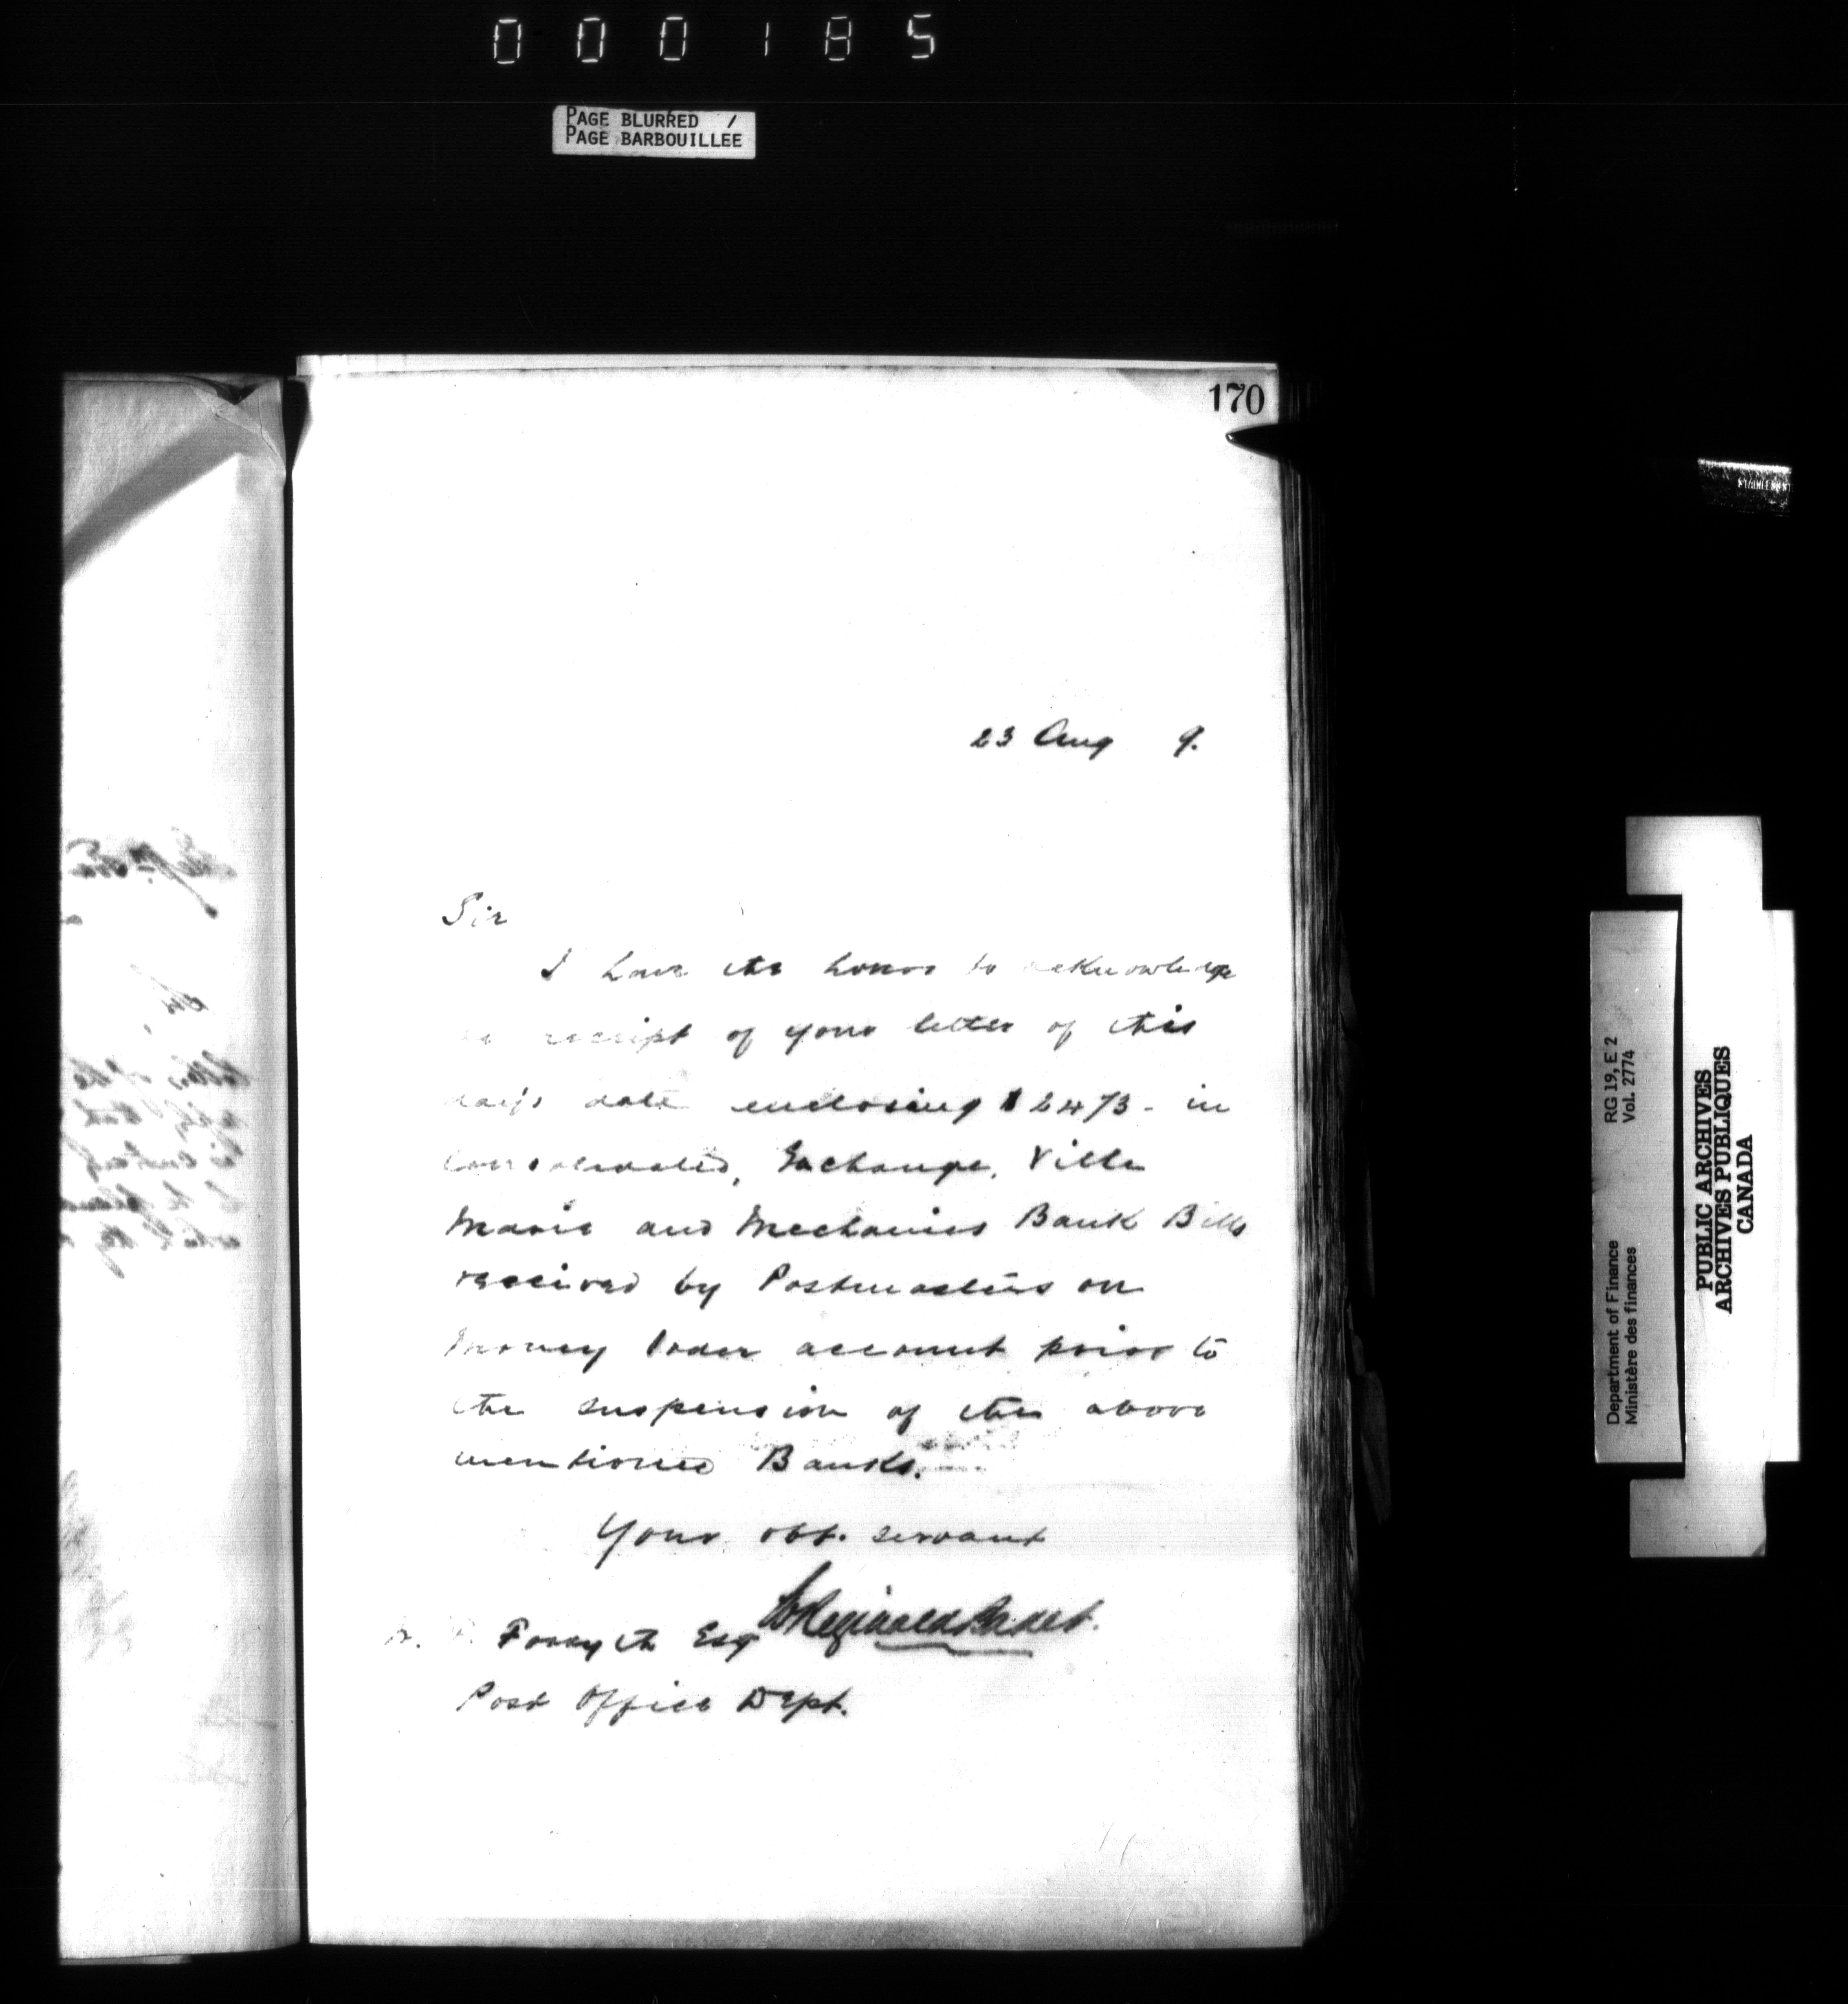 000185
PAGE BLURRED /
PAGE BARBOUILLEE
170
23 Aug 9.
Sir
I have the honor to acknowledge
receipt of your letter of this
day's date enclosing $2473- in
Consolidated, Exchange, Ville
Marie and Mechanics Bank Bills
received by Postmasters on
Money Order account prior to
the suspension of the above
mentioned Banks.
Your obt. servant
Forsyth Esq
Post Office Dept.
Department of Finance RG 19, E 2
Ministère des finances Vol. 2774
PUBLIC ARCHIVES
ARCHIVES PUBLIQUES
CANADA